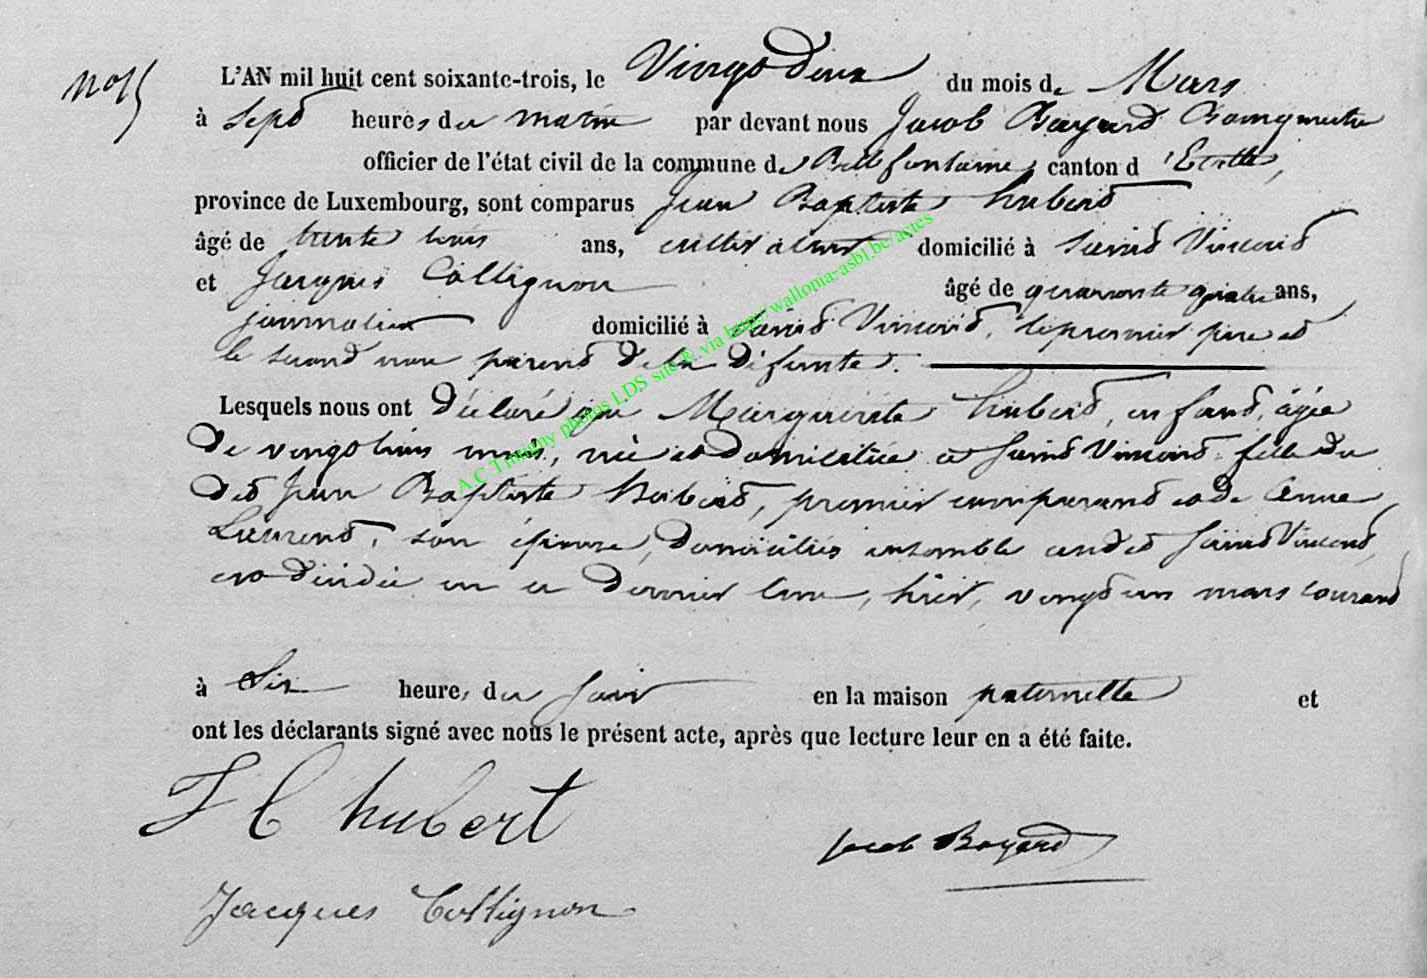 No 15
L'AN mil huit cent soixante-trois, le Vingt Deux du mois de Mars
à Sept heures du matin par devant nous Jacob Bayard Bourgmestre
officier de l'état civil de la commune de Bellefontaine, canton d'Etalle,
province de Luxembourg, sont comparus Jean Baptiste hubert
âgé de trente trois ans, cultivateur domicilié à Saint Vincent
et Jacques Collignon âgé de quarante quatre ans,
journalier domicilié à Saint Vincent, le premier père et
le second non parent de la défunte.
Lesquels nous ont Déclaré que Marguerite hubert, enfant, âgée
De vingt trois mois, née et Domiciliée à Saint Vincent fille du
dit Jean Baptiste hubert, premier comparant et de Anne
Laurent, son épouse, Domiciliés ensemble audit Saint Vincent,
est décédée en ce dernier lieu, hier, vingt un mars courant
à Six heures du soir en la maison paternelle et
ont les déclarants signé avec nous le présent acte, après que lecture leur en a été faite.
J B hubert
Jacob Bayard
Jacques Collignon
A.C Tintigny photos LDS site ® via http://wallonia-asbl.be/actes